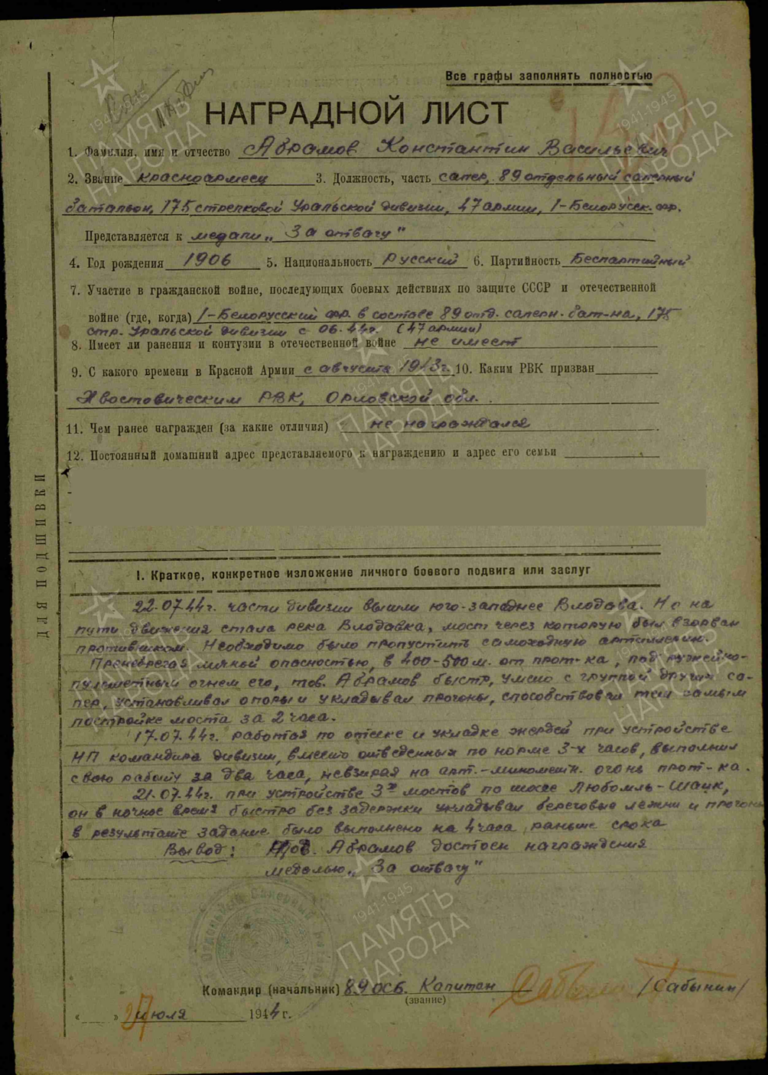 Все графы заполнять полностью
НАГРАДНОЙ ЛИСТ
1. Фамилия, имя и отчество Абрамов Константин Васильевич
2. Звание красноармеец 3. Должность, часть сапер, 89 отдельный саперный
батальон, 175 стрелковой Уральской дивизии, 47 армии, 1-Белорусск. фр.
Представляется к медали „За отвагу"
4. Год рождения 1906 5. Национальность Русский 6. Партийность Беспартийный
7. Участие в гражданской войне, последующих боевых действиях по защите СССР и отечественной
войне (где, когда) 1-Белорусский фр. в составе 89 отд. саперн. бат-на, 175
стр. Уральской дивизии с 06.44г. (47 армии)
8. Имеет ли ранения и контузии в отечественной войне не имеет
9. С какого времени в Красной Армии с августа 1943г. 10. Каким РВК призван
Хвостовическим РВК, Орловской обл.
11. Чем ранее награжден (за какие отличия) не награждался
12. Постоянный домашний адрес представляемого к награждению и адрес его семьи
ДЛЯ ПОДШИВКИ
I. Краткое, конкретное изложение личного боевого подвига или заслуг
22.07.44г. части дивизии вышли юго-западнее Влодава. Но на
пути движения стала река Влодавка, мост через которую был взорван
противником. Необходимо было пропустить самоходную артиллерию.
Пренебрегая личной опасностью, в 400-500 м. от прот-ка, под ружейно-
пулеметным огнем его, тов. Абрамов быстр, умело с группой других са-
пер, устанавливал опоры и укладывал прогоны, способствовал тем самым
постройке моста за 2 часа.
17.07.44г. работая по отеске и укладке жердей при устройстве
НП командира дивизии, вместо отведенных по норме 3-х часов, выполнил
свою работу за два часа, невзирая на арт.-минометн. огонь прот-ка.
21.07.44г. при устройстве 3х мостов по шоссе Любомль-Шацк,
он в ночное время быстро без задержки укладывал береговые лежни и прогоны
в результате задание было выполнено на 4 часа раньше срока
Вывод: Тов. Абрамов достоен награждения
медалью „За отвагу"
Командир (начальник) 89 ОСБ. Капитан /Сабынин/
(звание)
« » 27 июля 1944 г.
ПАМЯТЬ НАРОДА
1941-1945